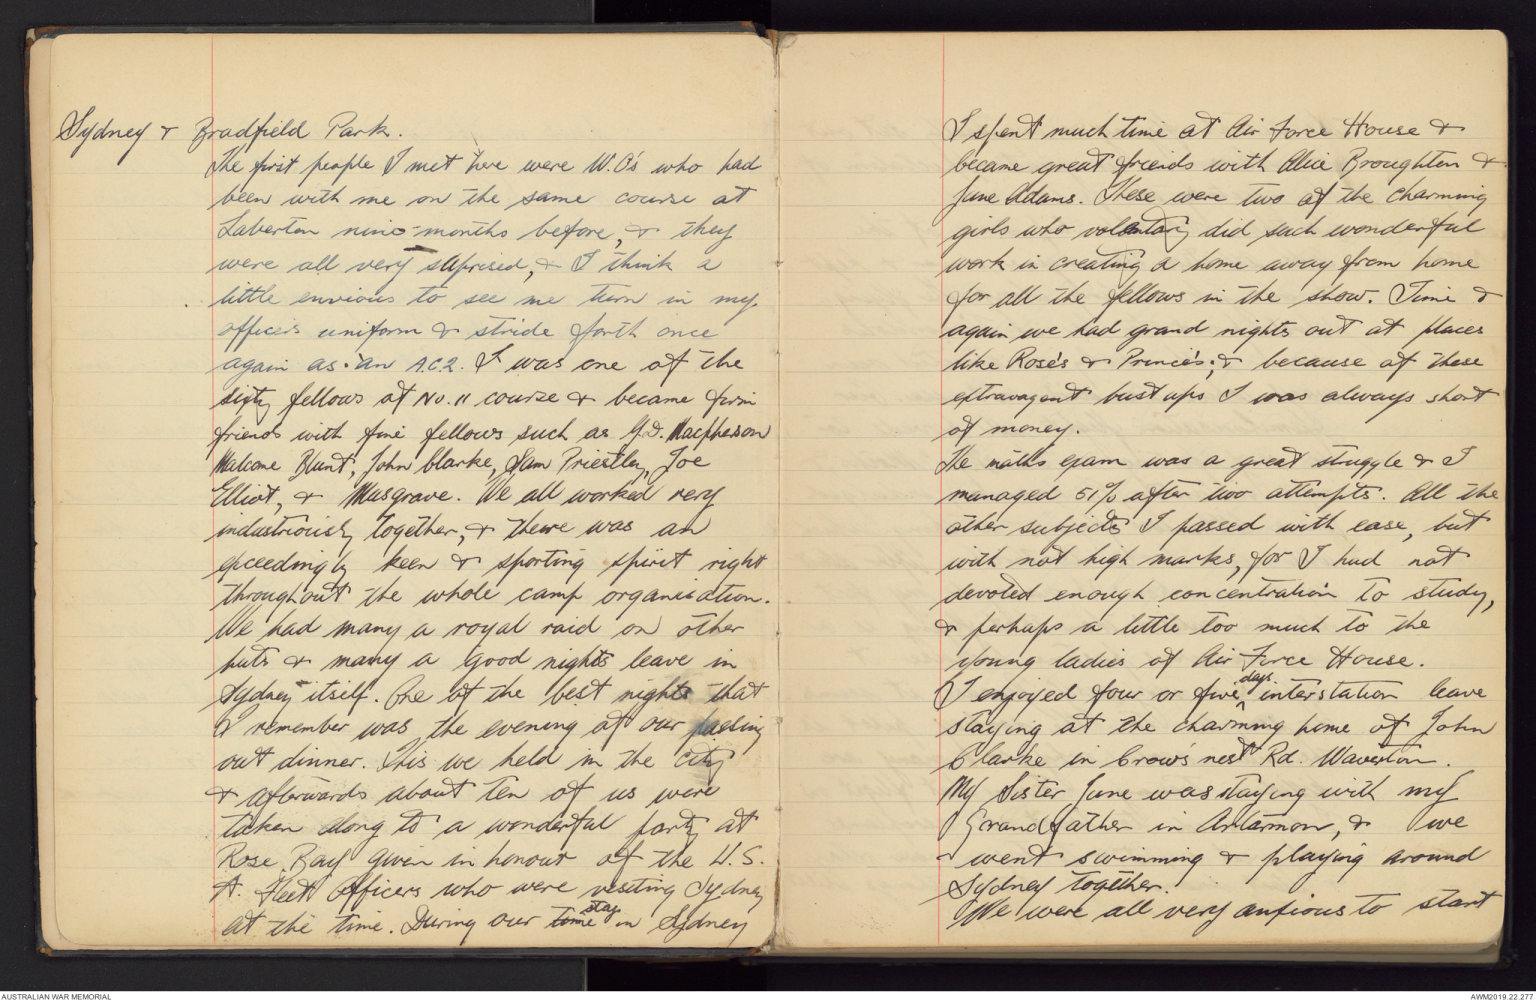 Sydney & Bradfield Park.
The first people I met here were W.O's who had
been with me on the same course at
Laverton nine-months before, & they
were all very suprised, & I think a
little envious to see me turn in my
officers uniform & stride forth once
again as an A.C.2. I was one of the
sixty fellows of No. 11 course & became firm
friends with fine fellows such as G.D. Macpherson
Malcome Blunt, John Clarke, Sam Priestley, Joe
Elliot, & Musgrave. We all worked very
industriously together, & there was an
exceedingly keen & sporting spirit right
throughout the whole camp organisation.
We had many a royal raid on other
huts & many a good nights leave in
Sydney itself. One of the best nights that
I remember was the evening of our passing
out dinner. This we held in the city
& afterwards about ten of us were
taken along to a wonderful party at
Rose Bay given in honour of the U.S.
A. Fleet Officers who were visiting Sydney
at the time. During our time stay in Sydney
I spent much time at Air Force House &
became great friends with Alice Broughton &
June Adams. These were two of the charming
girls who voluntary did such wonderful
work in creating a home away from home
for all the fellows in the show. Time &
again we had grand nights out at places
like Rose's & Prince's; & because of these
extravagent bust ups I was always short
of money.
The maths exam was a great struggle & I
managed 51% after two attempts. All the
other subjects I passed with ease, but
with not high marks, for I had not
devoted enough concentration to study,
& perhaps a little too much to the
young ladies of Air Force House.
I enjoyed four or five days interstation leave
staying at the charming home of John
Clarke in Crow's nest Rd. Waverton.
My Sister June was staying with my
Grandfather in Artarmon, & we
went swimming & playing around
Sydney together.
We were all very anxious to start
AUSTRALIAN WAR MEMORIAL
AWM2019.22.277